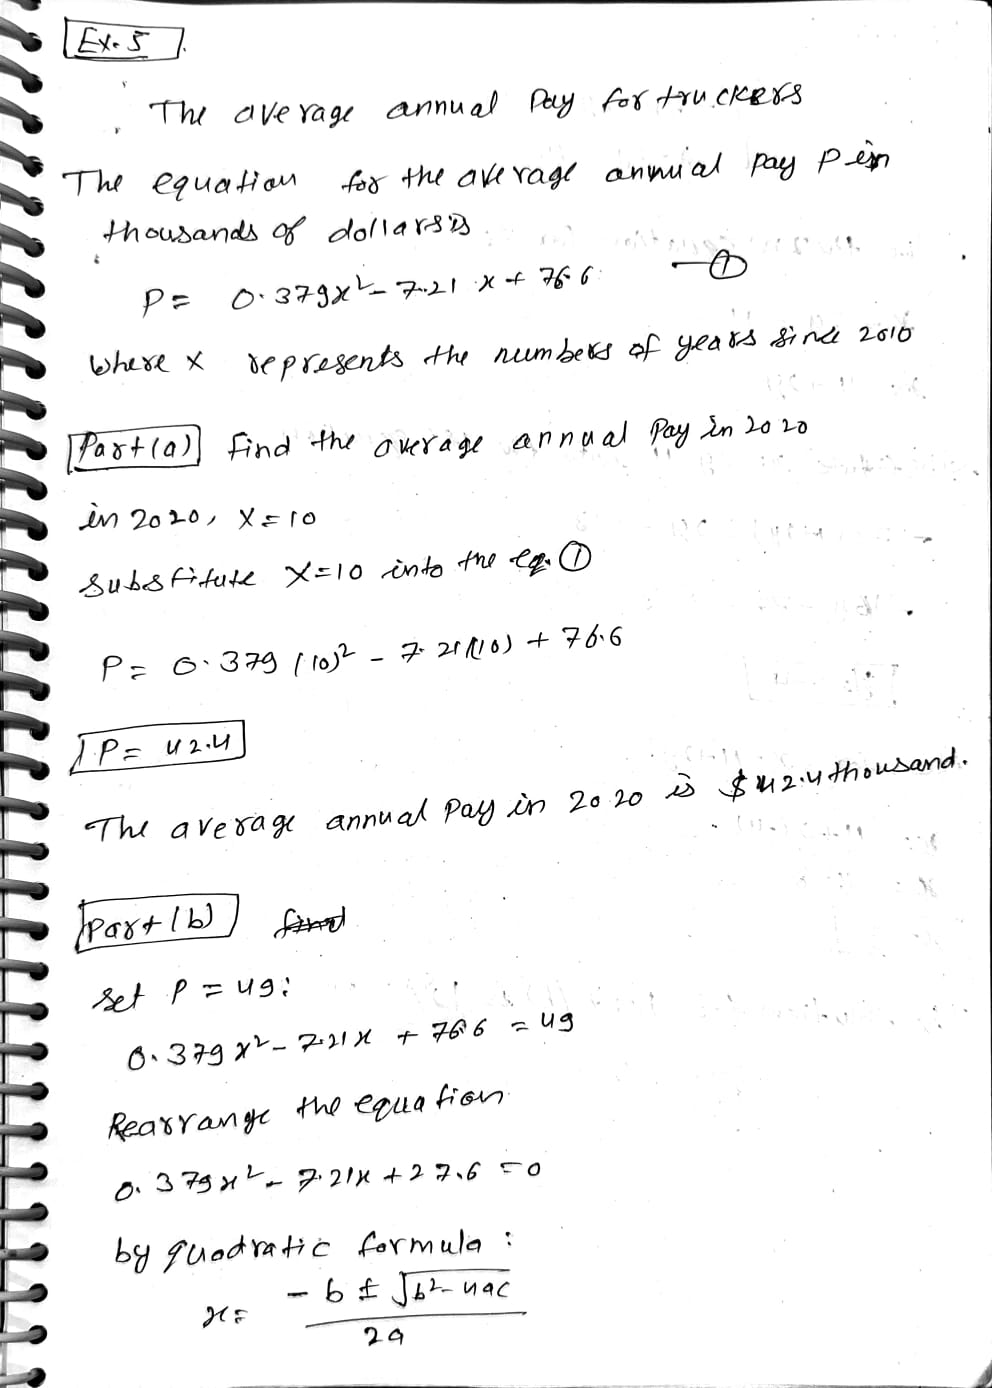 Ex. 5
The average annual Pay for truckers
The equation for the average annual pay P in
thousands of dollars is
P = 0.379x² - 7.21 x + 76.6 — ①
where x represents the numbers of years since 2010
Part(a) find the average annual Pay in 2020
in 2020, X=10
substitute X=10 into the eq. ①
P = 0.379 (10)² - 7.21(10) + 76.6
P = 42.4
The average annual Pay in 2020 is $42.4 thousand.
Part (b) find
set P = 49:
0.379 x² - 7.21x + 76.6 = 49
Rearrange the equation
0.379x² - 7.21x + 27.6 = 0
by quadratic formula :
x = -b ± √b²-4ac
2a